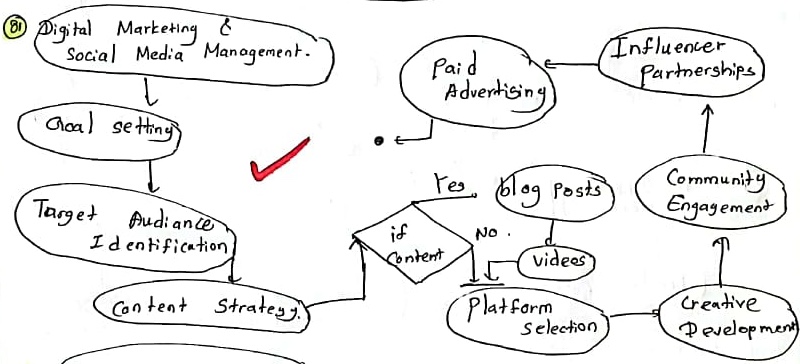 81
Digital Marketing &
Social Media Management.
Goal setting
Target Audiance
Identification
Content Strategy.
if
Content
Yes
No.
blog posts
videos
Platform
Selection
Creative
Development
Community
Engagement
Influencer
Partnerships
Paid
Advertising